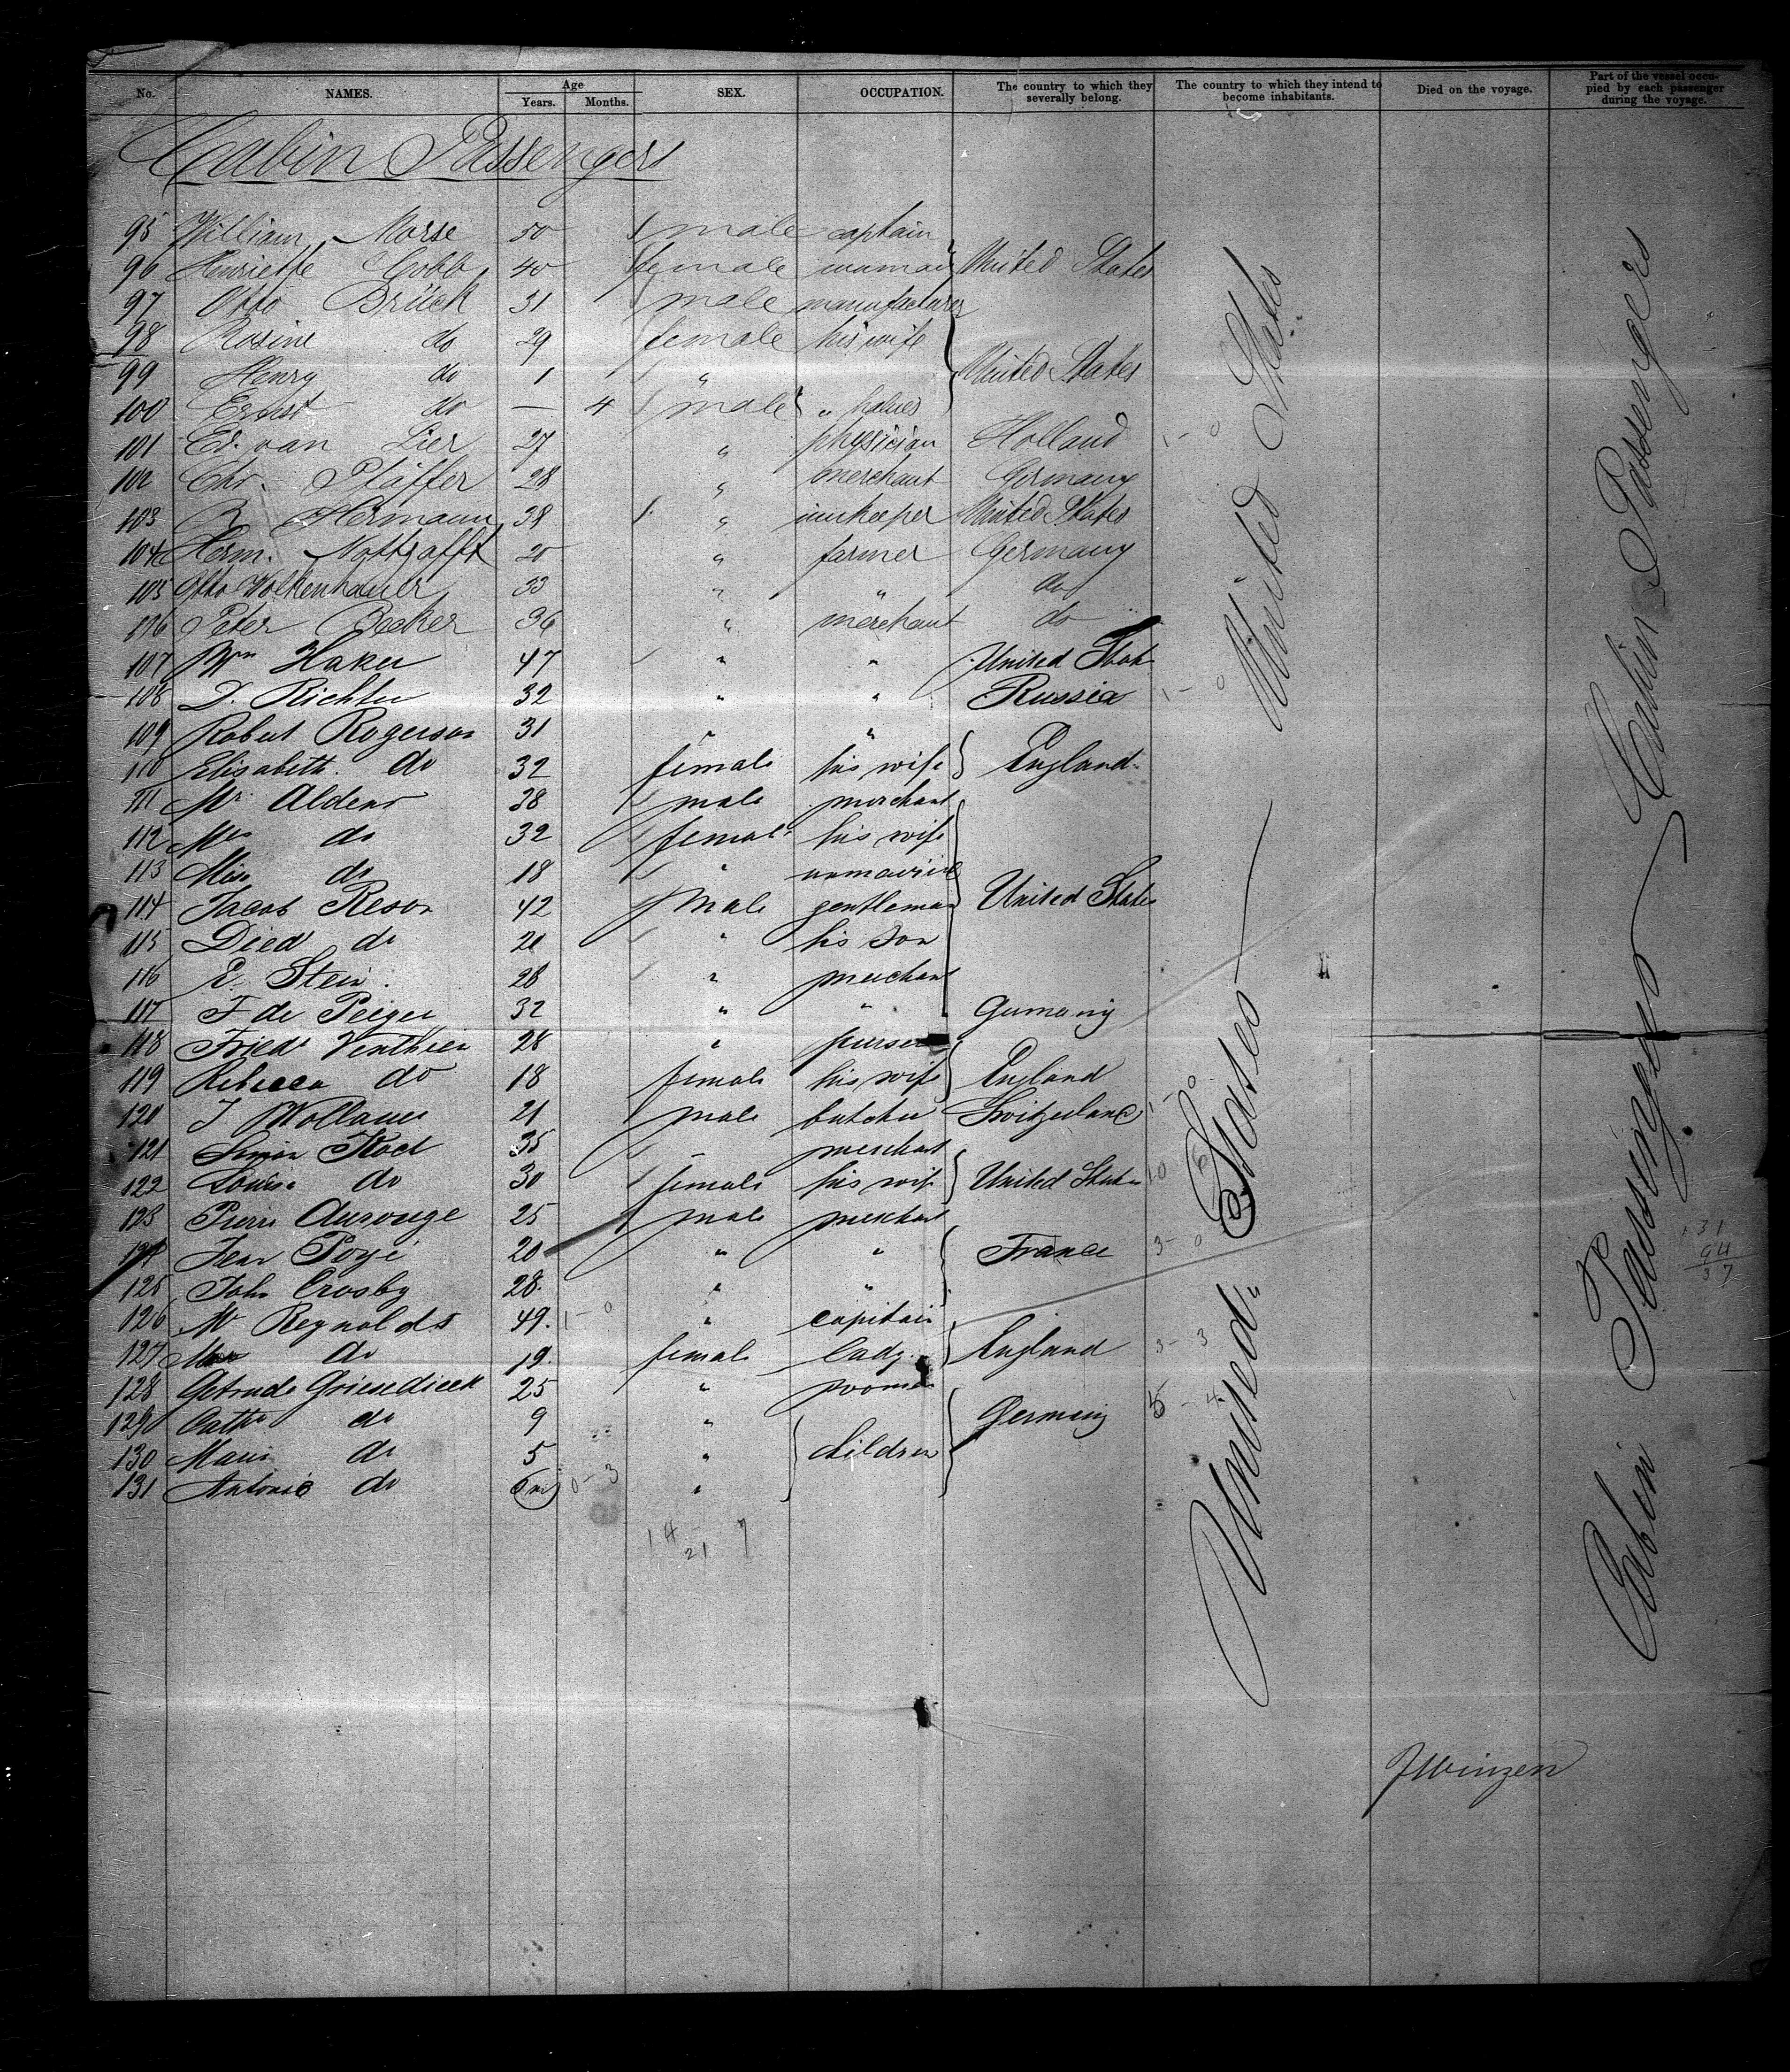 No. NAMES. Age Years. Months. SEX. OCCUPATION. The country to which they severally belong. The country to which they intend to become inhabitants. Died on the voyage. Part of the vessel occupied by each passenger during the voyage.
Cabin Passengers
95 William Morse 50 male captain
96 Henriette Cobb 40 female woman United States
97 Otto Brück 31 male manufacturer
98 Rosine do 29 female his wife
99 Henry do 1 " United States
100 Ernst do — 4 male "
101 Ed. van Lier 27 " physician Holland 1 - 0
102 Chr. Pfäffer 28 " merchant Germany
103 Hermann 38 " innkeeper United States
104 Herm. 20 " farmer Germany
105 Otto Wolkenhauer 33 " " do
106 Peter Becker 36 " merchant do
107 Wm Haker 47 " " United Stat
108 D. Richter 32 " " Russia 1 - 0
109 Robert Rogerson 31 " "
110 Elisabeth do 32 female his wife England
111 Mr. Alders 38 male merchant
112 Mrs do 32 female his wife
113 Miss do 18 " unmarried
114 Jacob Reson 42 male gentleman United States
115 Died do 20 " his son
116 E. Stein 28 " merchant
117 F de 32 " " Germany
118 Fried 28 "
119 Rebecca do 18 female his wife England
120 J 21 male butcher Switzerland
121 Simon 35 " merchant
122 Louise do 30 female his wife United States
123 Pierre Aurouge 25 male merchant
124 Jean 20 " " France 3 - 0
125 John Crosby 28. " "
126 Mr Reynolds 49. 1 - 0 " capitain
127 do 19. female lady England 3 - 3
128 Getrude Griesedieck 25 " woman
129 Cathe do 9 " Germany 5 - 4
130 Marie do 5 " children
131 Antonie do 0 - 3 "
14 21 7
United States
United States
Cabin Passengers
Cabin Passengers
131
94
37
JWinzen